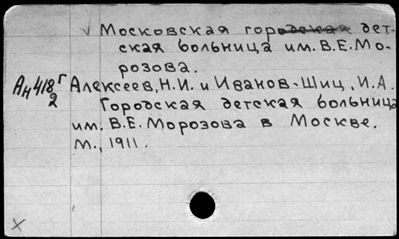 √ Московская городская дет-
ская больница им. В.Е. Мо-
розова.
Ан 418 г/2 Алексеев, Н.И. и Иванов-Шиц, И.А.
Городская детская больница
им. В.Е. Морозова в Москве.
М., 1911.
×